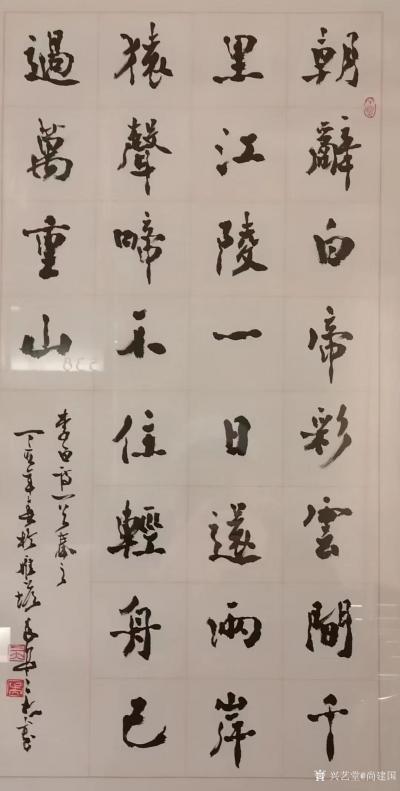 朝辭白帝彩雲間千
黑江陵一日還兩岸
猿聲啼不住輕舟已
過萬重山
李白詩一首
丁亥年
兴艺堂@尚建国